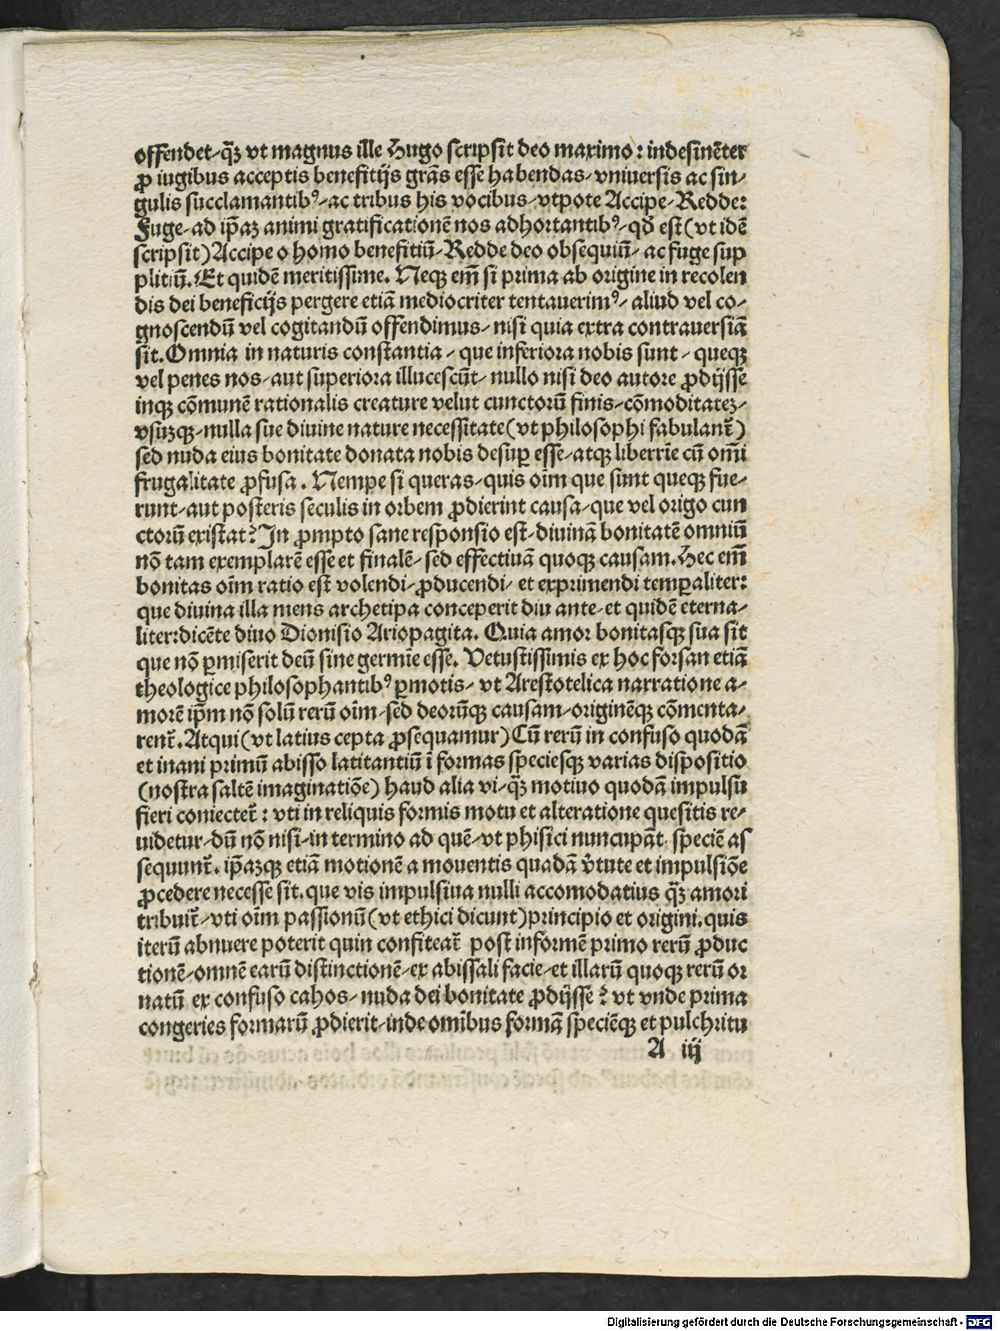 offendet⸗qꝫ̄ vt magnus ille Hugo scripsit deo maximo: indesinēter
ꝓ iugibus acceptis benefitijs grās esse habendas⸗vniuersis ac sin⸗
gulis succlamantibꝰ⸗ac tribus his vocibus⸗vtpote Accipe⸗Redde:
Fuge⸗ad ip̄aꝫ animi gratificationē nos adhortantibꝰ⸗qđ est(vt idē
scripsit)Accipe o homo benefitiū⸗Redde deo obsequiū⸗ac fuge sup
plitiū.Et quidē meritissime. Neqꝫ em̄ si prima ab origine in recolen
dis dei beneficijs pergere etiā mediocriter tentauerimꝰ⸗aliud vel co⸗
gnoscendū vel cogitandū offendimus⸗nisi quia extra contrauersiā
sit.Omnia in naturis constantia⸗que inferiora nobis sunt⸗queqꝫ
vel penes nos⸗aut superiora illucescūt⸗nullo nisi deo autore ꝓdijsse
inqꝫ cōmunē rationalis creature velut cunctorū finis⸗cōmoditateꝫ⸗
vsuꝫqꝫ⸗nulla sue diuine nature necessitate(vt philosophi fabulant̄)
sed nuda eius bonitate donata nobis desuꝑ esse⸗atqꝫ liberrīe cū om̄i
frugalitate ꝓfusa. Nempe si queras⸗quis oīm que sunt queqꝫ fue⸗
runt⸗aut posteris seculis in orbem ꝓdierint causa⸗que vel origo cun
ctorū existat? In ꝓmpto sane responsio est⸗diuinā bonitatē omniū
nō tam exemplarē esse et finalē⸗sed effectiuā quoqꝫ causam.Hec em̄
bonitas oīm ratio est volendi⸗ꝓducendi⸗et exprimendi temꝑaliter:
que diuina illa mens archetipa conceperit diu ante⸗et quidē eterna⸗
liter:dicēte diuo Dionisio Ariopagita. Quia amor bonitasqꝫ sua sit
que nō ꝑmiserit deū sine germīe esse. Vetustissimis ex hoc forsan etiā
theologice philosophantibꝰ ꝑmotis⸗vt Arestotelica narratione a⸗
morē ip̄m nō solū rerū oīm⸗sed deorūqꝫ causam⸗originēqꝫ cōmenta⸗
rent̄.Atqui(vt latius cepta ꝓsequamur)Cū rerū in confuso quodā
et inani primū abisso latitantiū ī formas speciesqꝫ varias dispositio
(nostra saltē imaginatiōe)haud alia vi⸗qꝫ̄ motiuo quodā impulsu
fieri coniectet̄: vti in reliquis formis motu et alteratione quesitis re⸗
uidetur⸗dū nō nisi⸗in termino ad quē⸗vt phisici nuncupāt speciē as
sequunt̄. ip̄aꝫqꝫ etiā motionē a mouentis quadā v̄tute et impulsiōe
ꝓcedere necesse sit.que vis impulsiua nulli accomodatius qꝫ̄ amori
tribuit̄⸗vti oīm passionū(vt ethici dicunt)principio et origini.quis
iterū abnuere poterit quin confiteat̄ post informē primo rerū ꝓduc
tionē⸗omnē earū distinctionē⸗ex abissali facie⸗et illarū quoqꝫ rerū or
natū ex confuso cahos⸗nuda dei bonitate ꝓdijsse? vt vnde prima
congeries formarū ꝓdierit⸗inde omībus formā speciēqꝫ et pulchritu
A iij
Digitalisierung gefördert durch die Deutsche Forschungsgemeinschaft - DFG